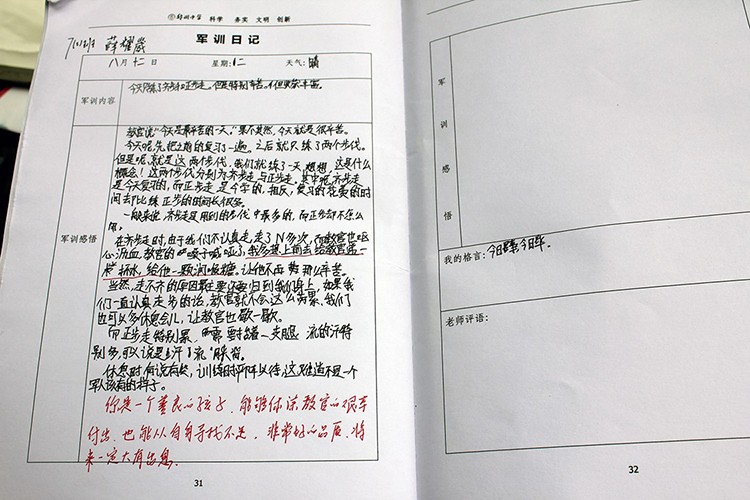 郑州中学 科学 务实 文明 创新
军训日记
八月十二日 星期:二 天气:晴
军训内容
今天只练了齐步和正步走。但是特别辛苦。
军训感悟
教官说"今天是最辛苦的一天。"果不其然,今天就是很辛苦。
今天呢,先把之前的复习了一遍。之后就只练了两个步伐。
但是呢,就是这两个步伐,我们就练了一天,想想,这是什么
概念!这两个步伐分别为齐步走与正步走。其中呢,齐步走
是今天复习的,而正步走是今学的,相反,复习的花费的时
间却比练正步的时间长很多。
一般来说,齐步走是用到的步伐中最多的,而正步却不怎么
用。
在齐步走时,由于我们不认真走,走了N多次,而教官也呕
心沥血,教官的嗓子喊哑了,我多想上前去给教官
杯水,给他一颗润喉糖。让他不再那么辛苦。
当然,走不齐的原因最主要还要归到我们身上,如果我
们一直认真走步的话,教官就不会这么劳累,我们
也可以多休息会儿,让教官也歇一歇。
而正步走特别累,需要抬着一支腿,流的汗特
别多,可以说是"汗"流"浃背"。
休息时有说有笑,训练时严阵以待,这难道不是一个
军人该有的样子。
你是一个善良的孩子,能够体谅教官的艰辛
付出,也能从自身寻找不足,非常好的品质,将
来一定大有出息。
31
军训感悟
我的格言:
老师评语:
32